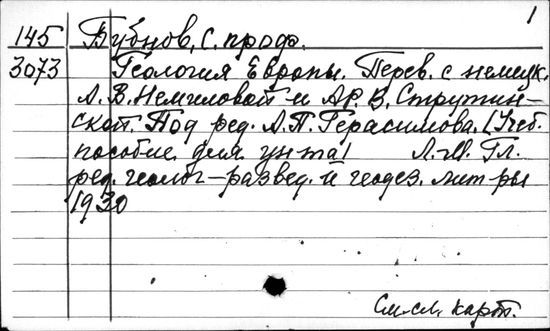 1
145 Бубнов, С. проф.
3073 Геология Европы. Перев. с немецк.
А. В. Немиловой и Ар. В. Струтин-
ской. Под ред. А. П. Герасимова. (Учеб.
пособие для ун-та) Л.-М. Гл.
ред. геолог-развед. и геодез. лит-ры
1930
См. сл. карт.